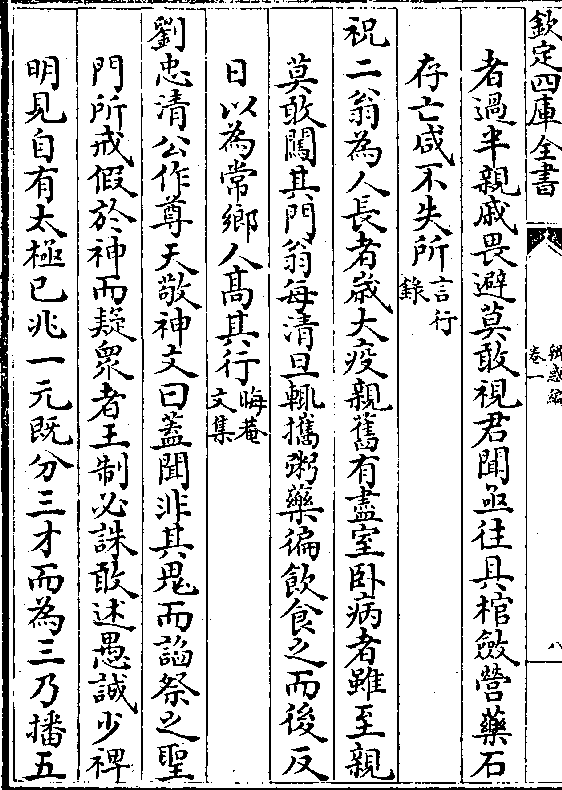 欽定四庫全書
辨惑編
卷一
八
者過半親戚畏避莫敢視君聞亟往具棺斂營藥石
存亡咸不失所言行
錄
祝二翁為人長者歲大疫親舊有盡室卧病者雖至親
莫敢闖其門翁每清旦輒攜粥藥徧飲食之而後反
日以為常鄉人髙其行晦菴
文集
劉忠清公作尊天敬神文曰蓋聞非其鬼而謟祭之聖
門所戒假於神而疑衆者王制必誅敢述愚誠少裨
明見自有太極已兆一元既分三才而為三乃播五